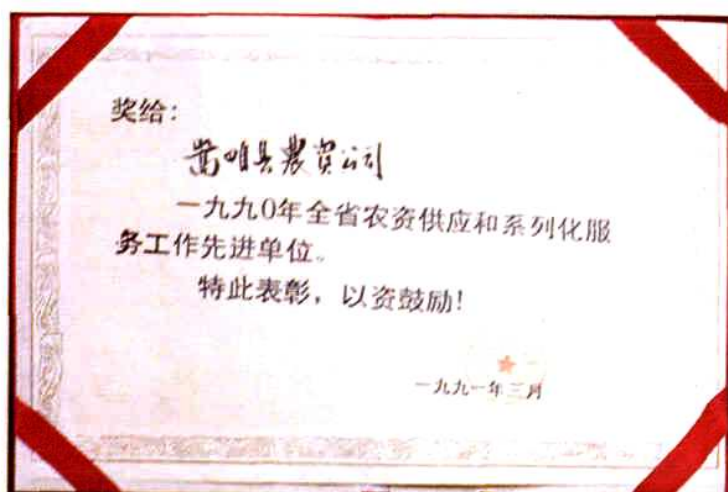 奖给：
嵩明县农资公司
一九九0年全省农资供应和系列化服
务工作先进单位。
特此表彰，以资鼓励！
一九九一年三月